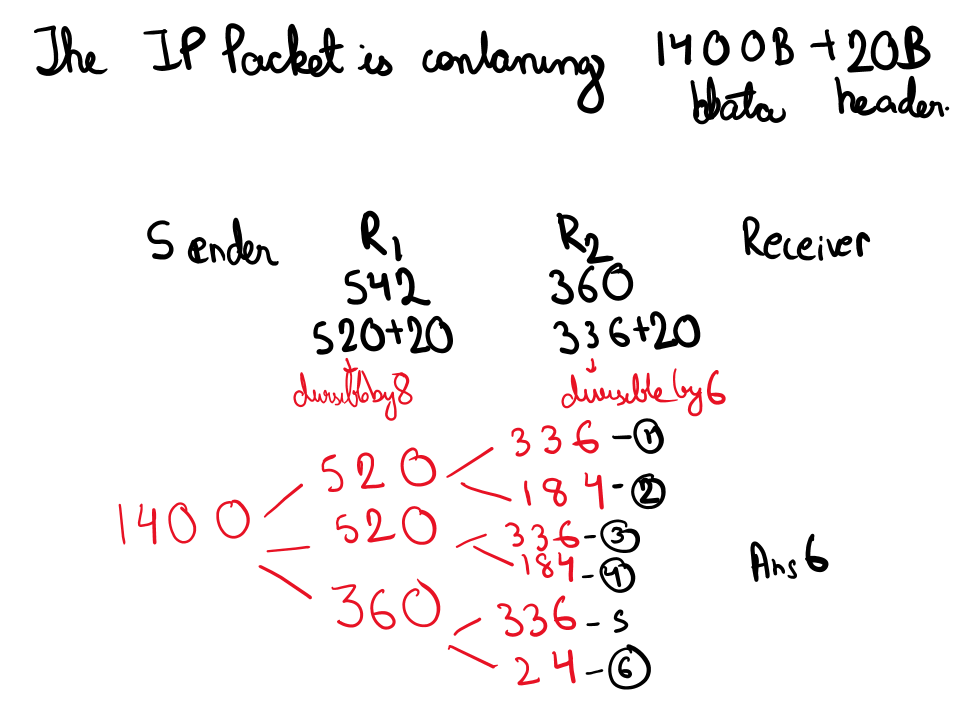 The IP Packet is contaning 1400B + 20B
data header.
Sender R1 R2 Receiver
542 360
520+20 336+20
divisible by 8 divisible by 6
336 - 1
520
184 - 2
1400
520
336 - 3
184 - 4
Ans 6
360
336 - 5
24 - 6